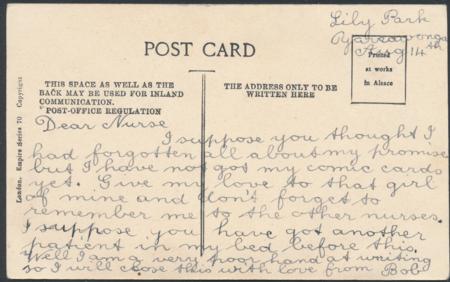 Lily Park
Yarrawonga
Aug 14th
POST CARD
Printed
at works
in Alsace
THIS SPACE AS WELL AS THE
BACK MAY BE USED FOR INLAND
COMMUNICATION.
POST-OFFICE REGULATION
THE ADDRESS ONLY TO BE
WRITTEN HERE
London. Empire Series 70 Copyright
Dear Nurse
I suppose you thought I
had forgotten all about my promise
but I have not got my comic cards
yet. Give my love to that girl
of mine and don't forget to
remember me to the other nurses.
I suppose you have got another
patient in my bed before this.
Well I am a very poor hand at writing
so I will close this with love from Bob